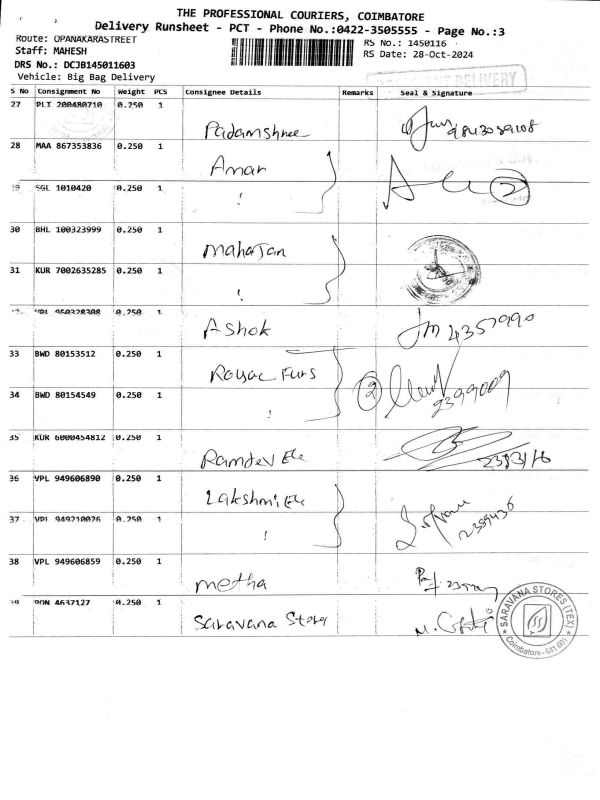 THE PROFESSIONAL COURIERS, COIMBATORE
Delivery Runsheet - PCT - Phone No.:0422-3505555 - Page No.:3
Route: OPANAKARASTREET RS No.: 1450116
Staff: MAHESH RS Date: 28-Oct-2024
DRS No.: DCJB145011603
Vehicle: Big Bag Delivery
DELIVERY
S No Consignment No Weight PCS Consignee Details Remarks Seal & Signature
27 PLT 200480710 0.250 1 Padamshree 9843059108
28 MAA 867353836 0.250 1 Aman
SGL 1010420 0.250 1 ! 2
30 BHL 100323999 0.250 1 mahajan
31 KUR 7002635285 0.250 1 !
VPL 950328308 0.250 1 Ashok 4357990
33 BWD 80153512 0.250 1 Royal Furs 2
34 BWD 80154549 0.250 1 ! 2399009
35 KUR 6000454812 0.250 1 Ramdev Ele
36 VPL 949606890 0.250 1 Lakshmi Ele
37 VPL 949210026 0.250 1 ! 2389436
38 VPL 949606859 0.250 1 metha
39 PON 4637127 0.250 1 Saravana Store
SARAVANA STORES (TEX)
Coimbatore - 641 001